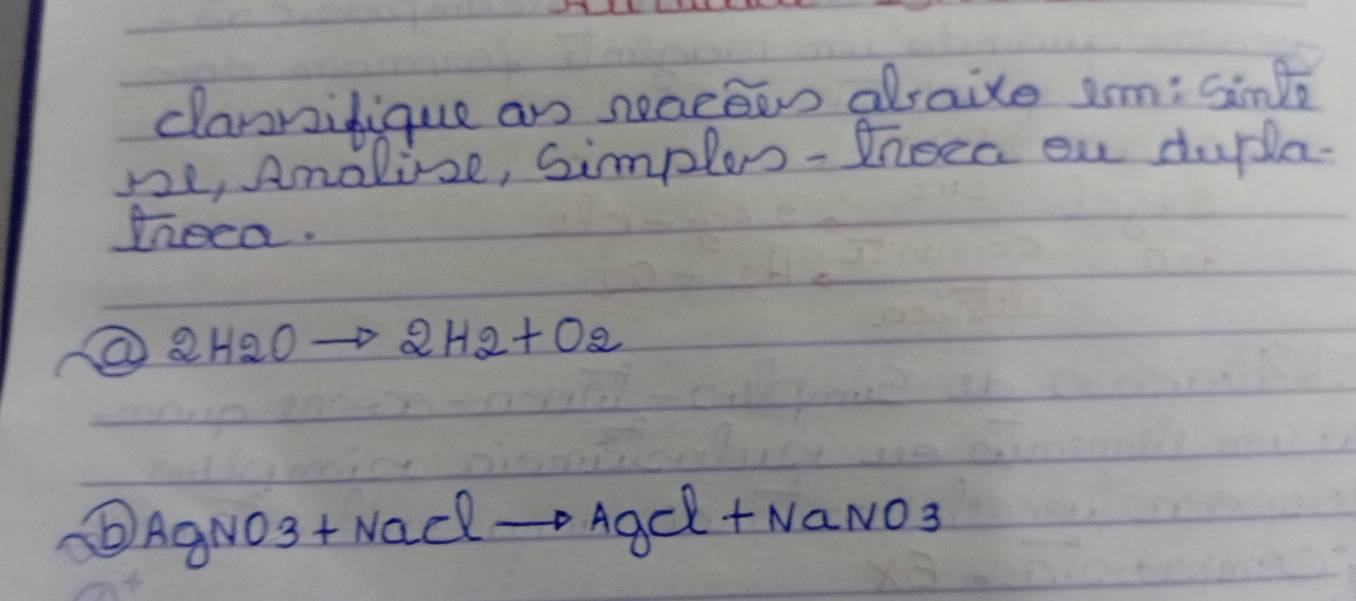 classifique as reacões abaixo em: Sínte
se, Analise, Simples - Troca ou dupla-
Troca.
a 2H2O → 2H2 + O2
b AgNO3 + Nacl → Agcl + NaNO3